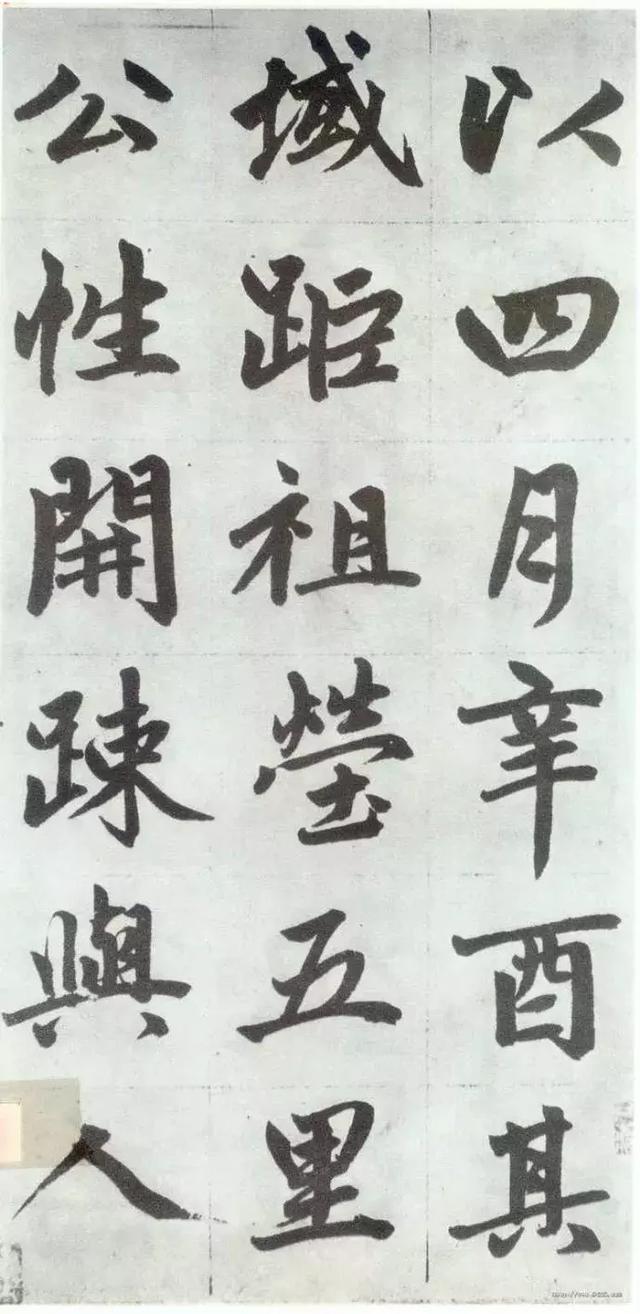 以四月辛酉其
域距祖塋五里
公性開踈與人